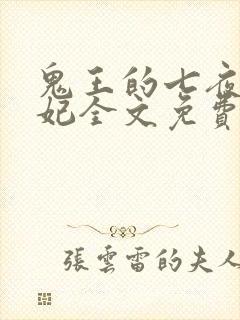 鬼王的七夜
妃全文免費
張雲雷的夫人